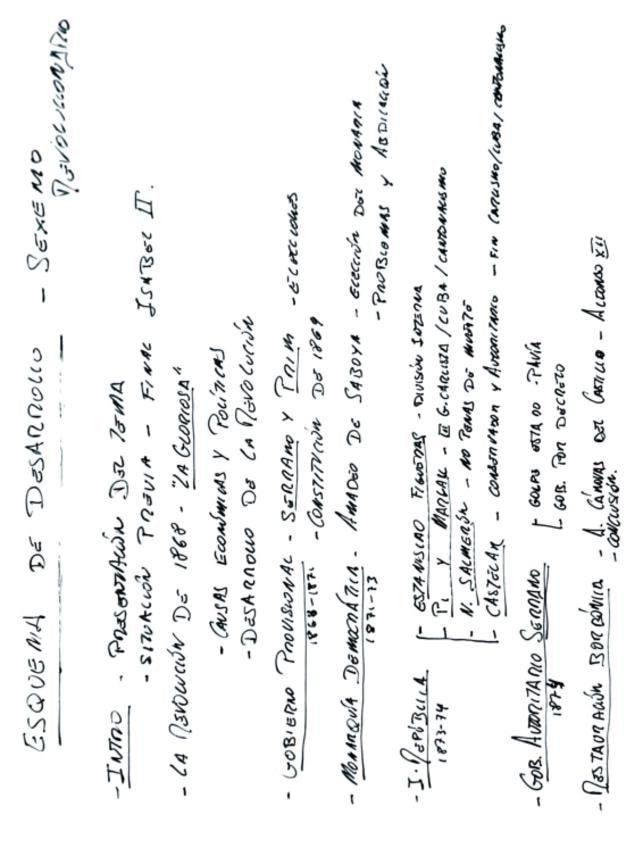 ESQUEMA DE DESARROLLO - SEXENIO
REVOLUCIONARIO
- INTRO - PRESENTACIÓN DEL TEMA
- SITUACIÓN PREVIA - FINAL ISABEL II.
- LA REVOLUCIÓN DE 1868 - "LA GLORIOSA"
- CAUSAS ECONÓMICAS Y POLÍTICAS
- DESARROLLO DE LA REVOLUCIÓN
- GOBIERNO PROVISIONAL - SERRANO Y PRIM - ELECCIONES
1868-1871 - CONSTITUCIÓN DE 1869
- MONARQUÍA DEMOCRÁTICA - AMADEO DE SABOYA - ELECCIÓN DEL MONARCA
1871-73 - PROBLEMAS Y ABDICACIÓN
- I. REPÚBLICA - ESTANISLAO FIGUERAS - DIVISIÓN INTERNA
1873-74 - PI Y MARGAL - III G. CARLISTA / CUBA / CANTONALISMO
- N. SALMERÓN - NO PENAS DE MUERTE
- CASTELAR - CONSERVADOR Y AUTORITARIO - FIN CARLISMO/CUBA/CANTONALISMO
- GOB. AUTORITARIO SERRANO - GOLPE ESTADO - PAVÍA
1874 - GOB. POR DECRETO
- RESTAURACIÓN BORBÓNICA - A. CÁNOVAS DEL CASTILLO - ALFONSO XII
- CONCLUSIÓN.